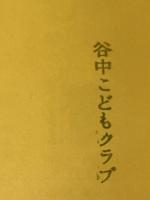 谷中こどもクラブ